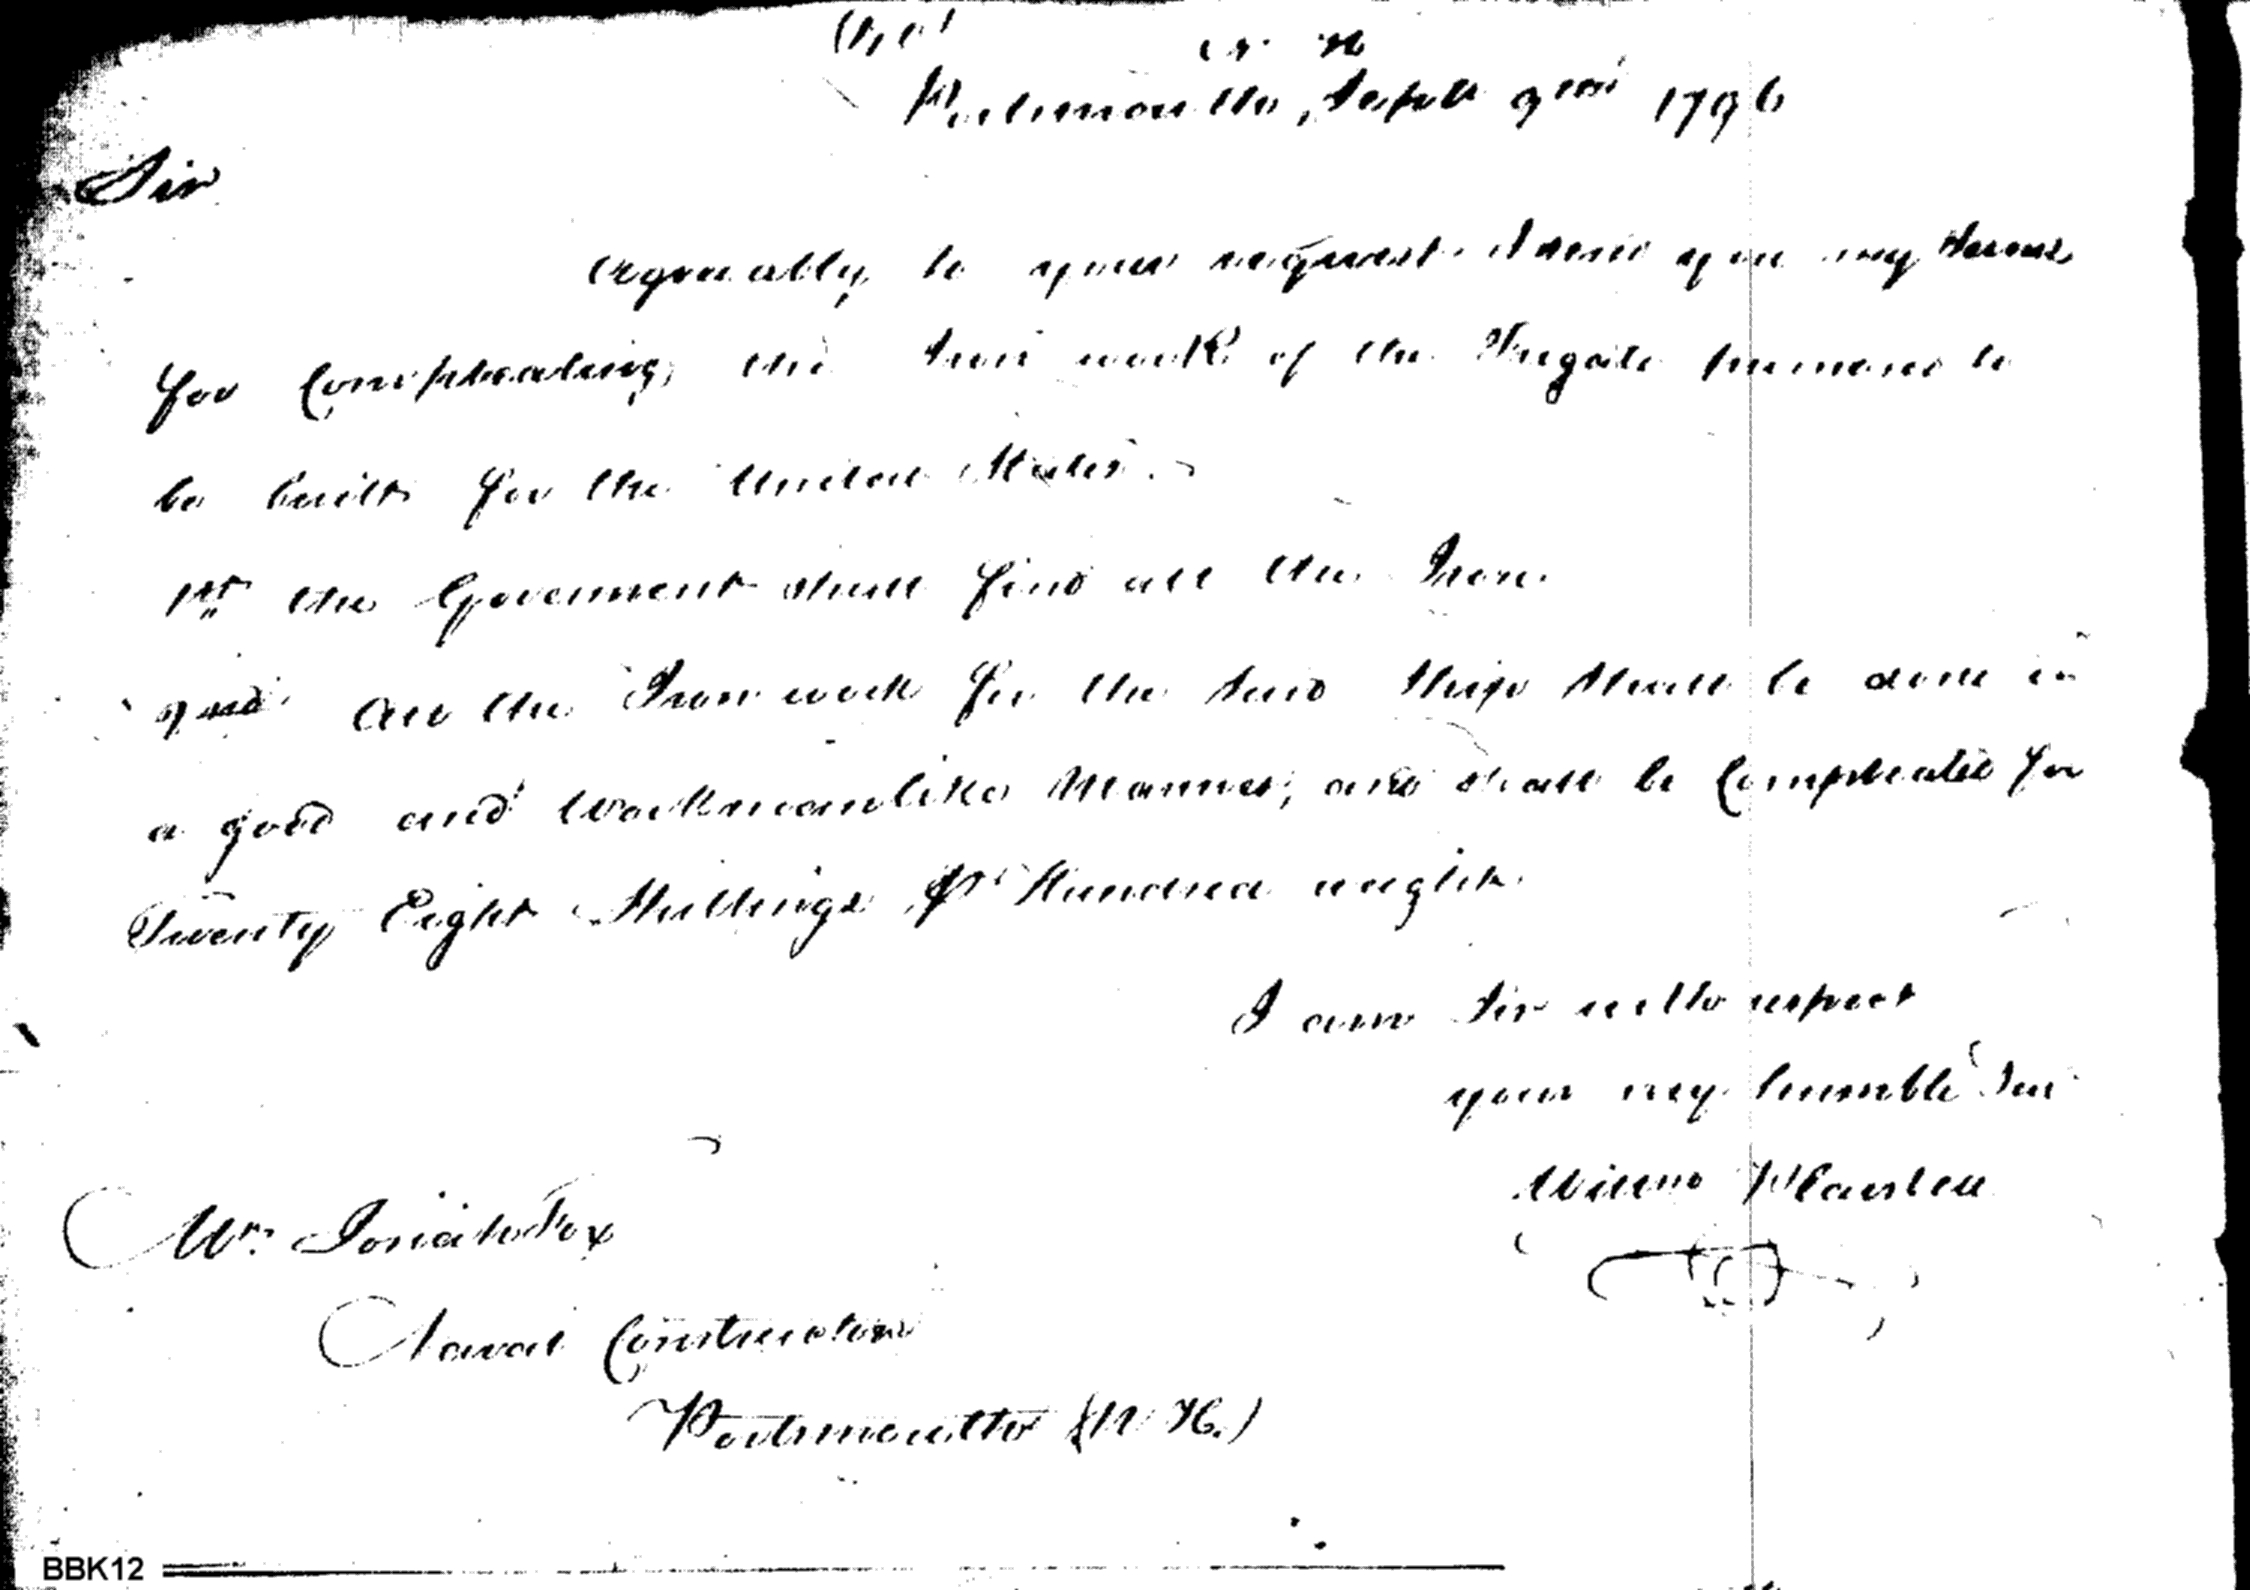 N H
Portsmouth, Septr 9th 1796
Sir
Agreeably to your request I send you my terms
for Compleating the Iron work of the Frigate to
be built for the United States.
1st the Goverment shall find all the Iron.
2nd All the Iron work for the said Ship shall be done in
a good and Workmanlike Manner, and shall be Compleated for
Twenty Eight Shillings pr Hundred weight.
I am Sir with respect
your humble Ser
Mr. Josiah Fox
Naval Constructor
Portsmouth (N H.)
BBK12